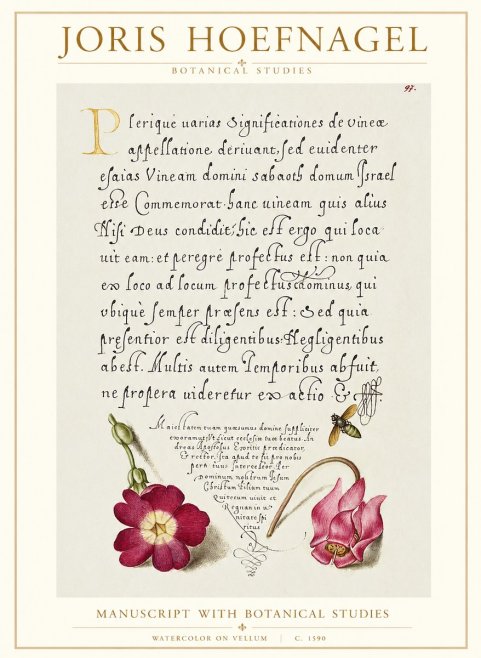 JORIS HOEFNAGEL
BOTANICAL STUDIES
97.
Plerique uarias Significationes de vineæ
appellatione deriuant, sed euidenter
esaias Vineam domini sabaoth domum Israel
esse Commemorat. hanc uineam quis alius
Nisi Deus condidit; hic est ergo qui loca
uit eam: et peregre profectus est: non quia
ex loco ad locum profectus dominus, qui
vbique semper præsens est: Sed quia
presentior est diligentibus: Negligentibus
abest. Multis autem Temporibus abfuit,
ne propera uideretur exactio &.
Maiestatem tuam quæsumus domine suppliciter
exoramus: vt sicut ecclesiæ tuæ beatus An
dreas Apostolus Extitit prædicator,
& rector, ita apud te sit pro nobis
perpetuus Intercessor. Per
Dominum nostrum Iesum
Christum Filium tuum
Qui tecum uiuit et
Regnat in u
nitate Spi
ritus
MANUSCRIPT WITH BOTANICAL STUDIES
WATERCOLOR ON VELLUM | C. 1590